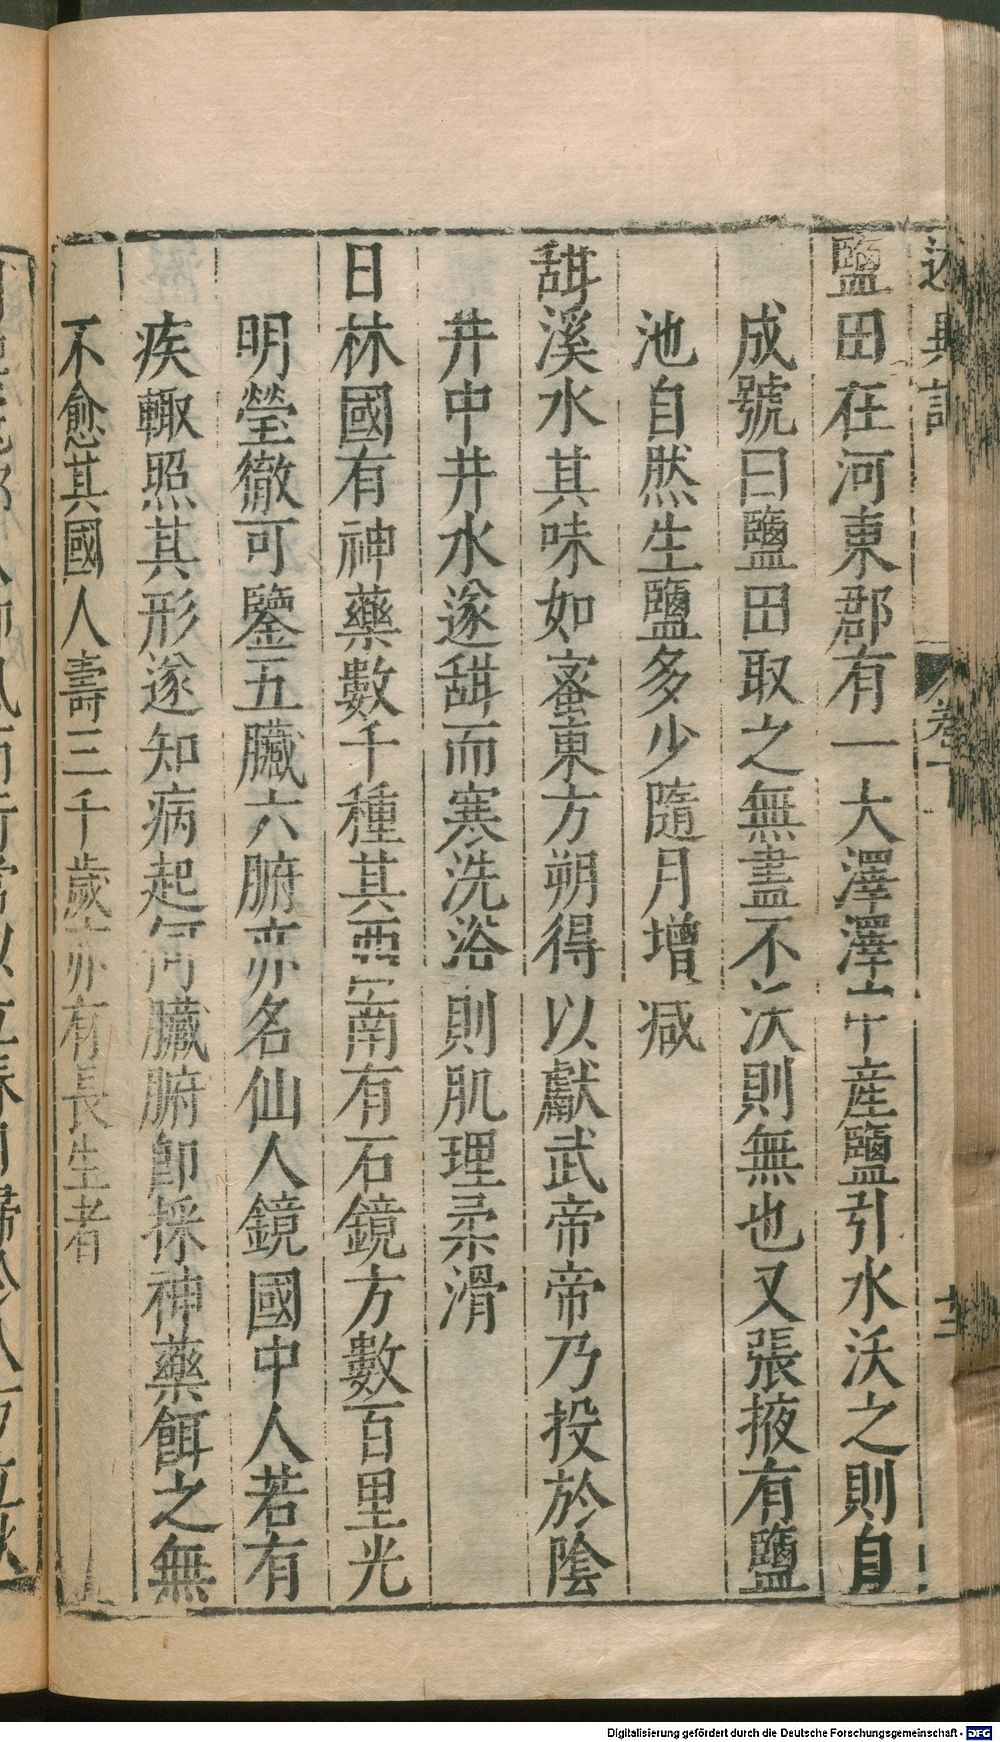 鹽田在河東郡有一大澤澤中產鹽引水沃之則自
成號曰鹽田取之無盡不沃則無也又張掖有鹽
池自然生鹽多少隨月增減
甜溪水其味如蜜東方朔得以獻武帝帝乃投於陰
井中井水遂甜而寒洗浴則肌理柔滑
日林國有神藥數千種其西南有石鏡方數百里光
明瑩徹可鑒五臟六腑亦名仙人鏡國中人若有
疾輙照其形遂知病起何臟腑卽採神藥餌之無
不愈其國人壽三千歲亦有長生者
Digitalisierung gefördert durch die Deutsche Forschungsgemeinschaft - DFG